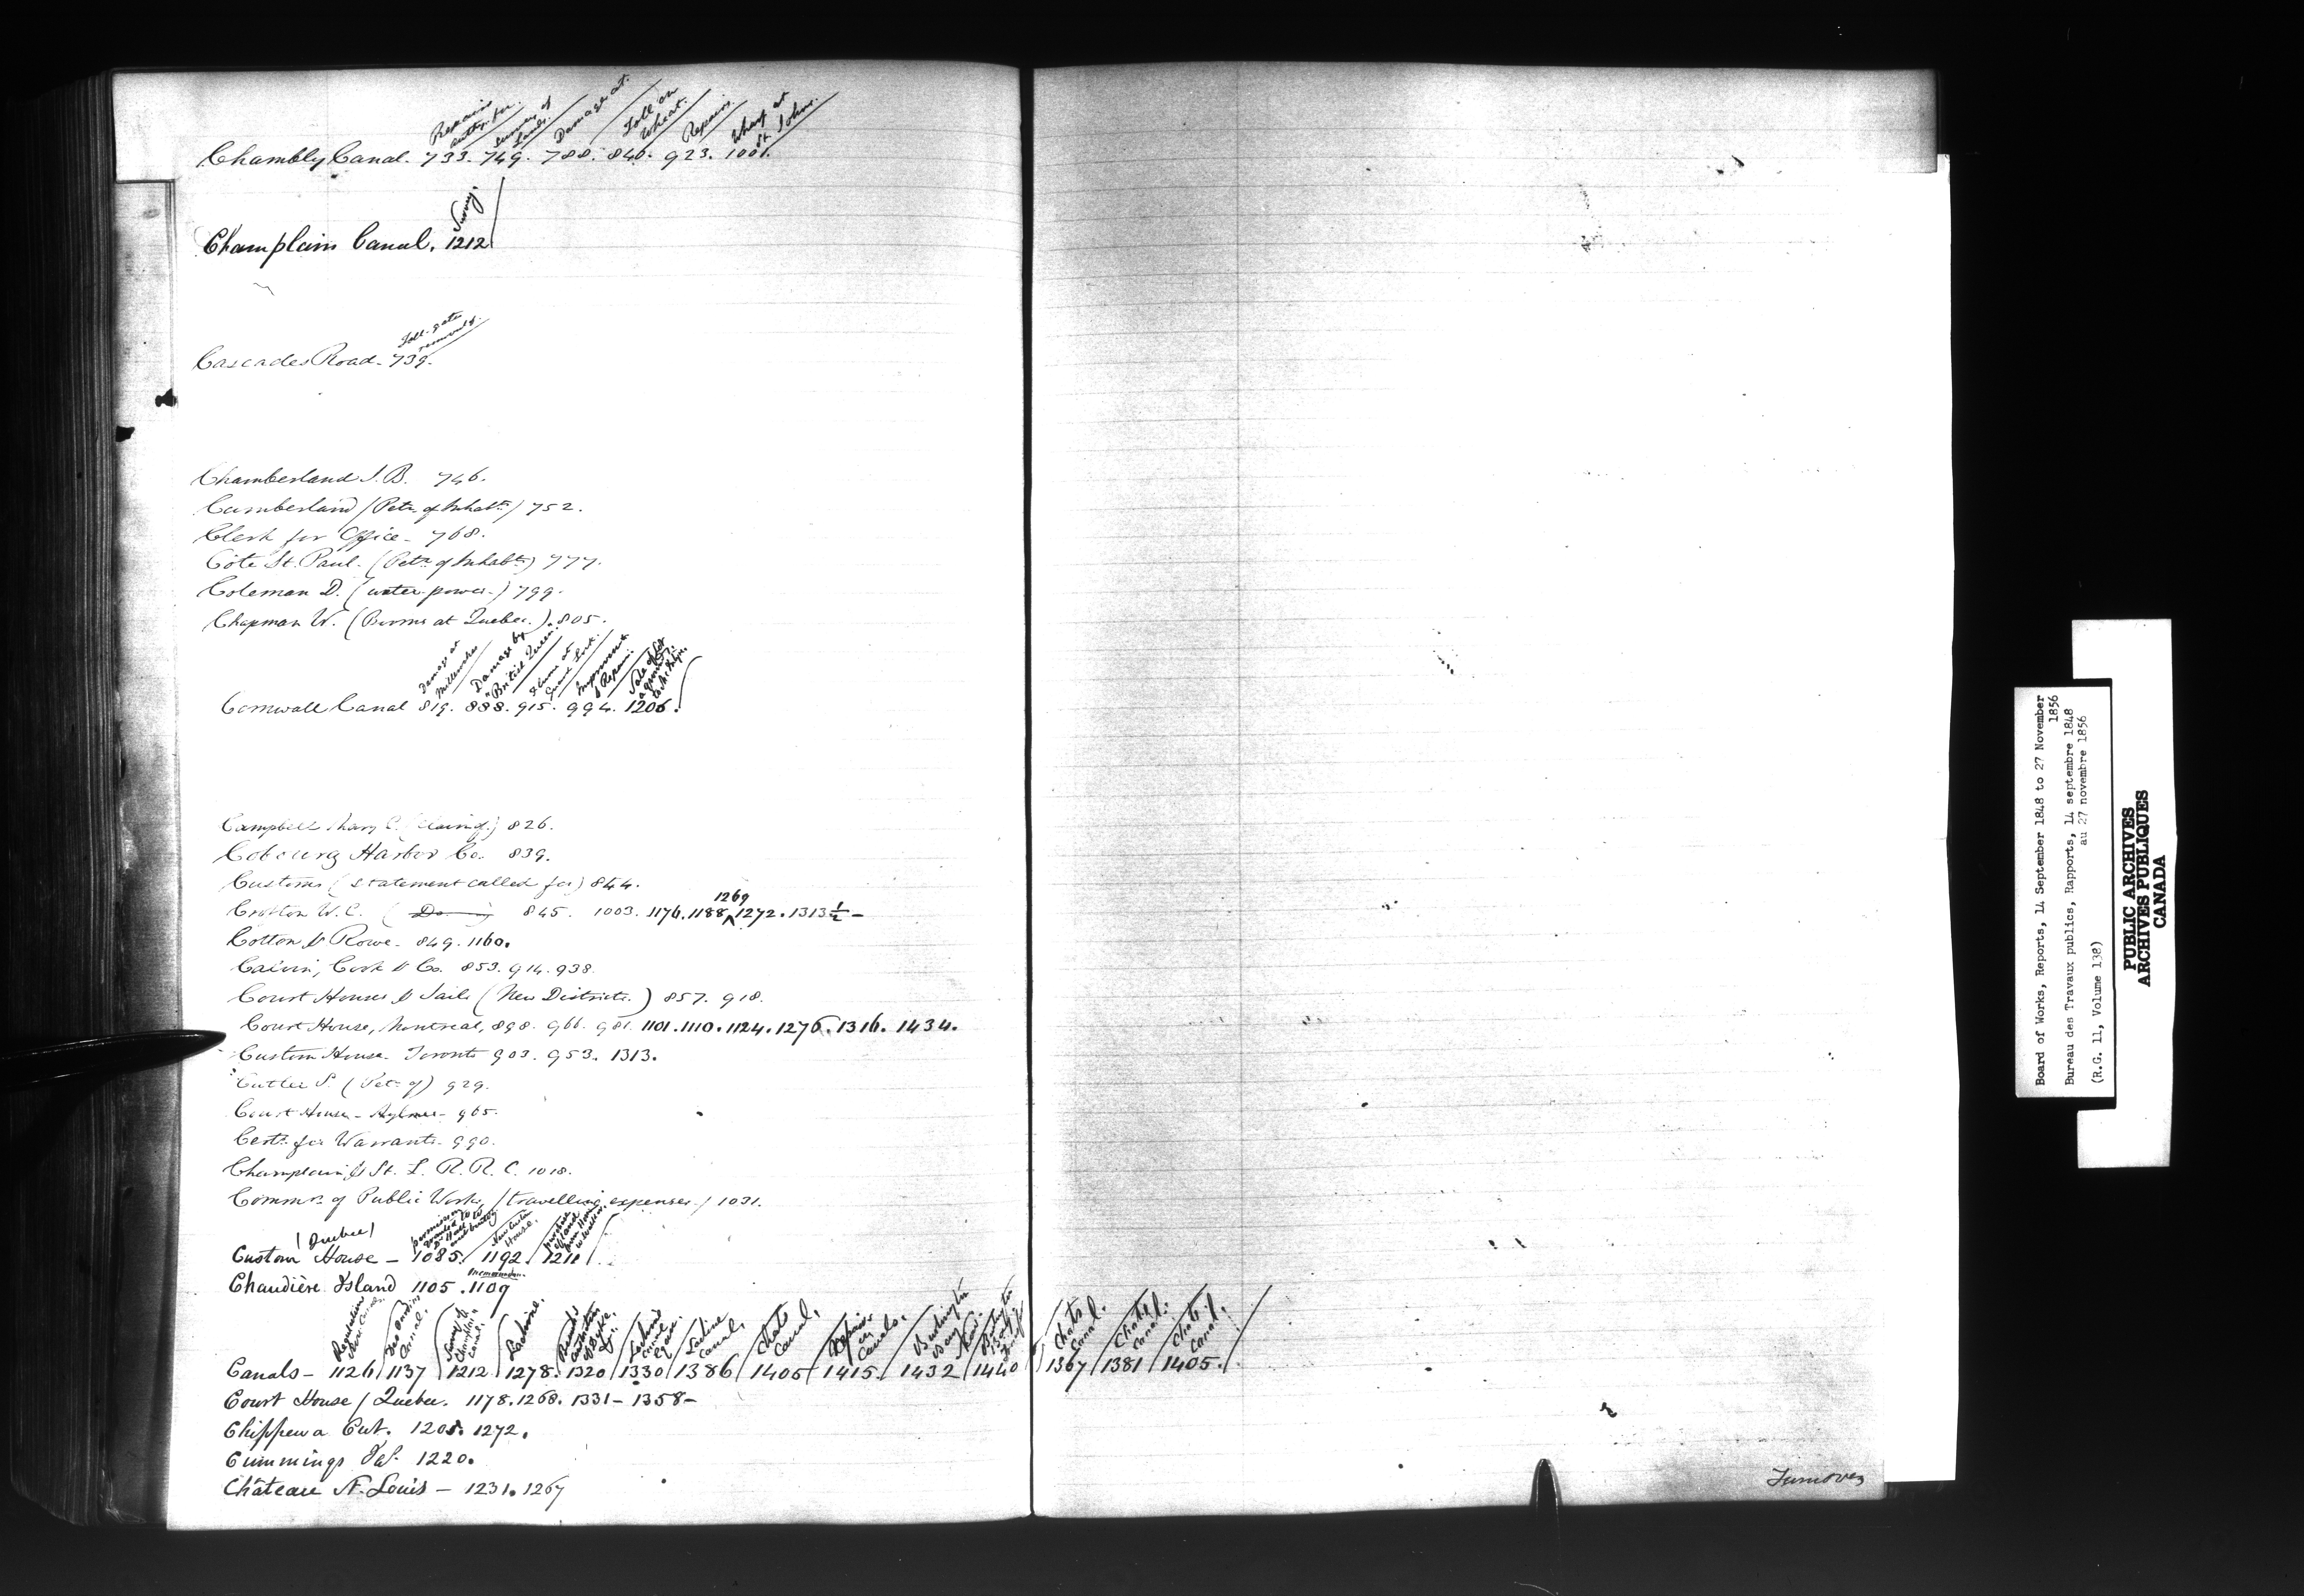 Repairs
Survey of
Lands
Damage at.
Toll on
Wheat.
Repairs.
Wharf at
St. Johns.
Chambly Canal. 733. 749. 788. 840. 923. 1001.
Survey.
Champlain Canal. 1212
Toll-gate
removed.
Cascades Road - 739.
Chamberland J. B. 746.
Cumberland (Petn. of Inhabts.) 752.
Clerk for Office - 768.
Côte St. Paul. (Petn. of Inhabts.) 777.
Coleman D. (water-power.) 799.
Chapman W. (Booms at Quebec.) 805.
Damage at
Damage by
"British Queen"
Improvement
& Repairs.
Cornwall Canal 819. 888. 915. 994. 1206.
Campbell Mary C. (claim of) 826.
Cobourg Harbor Co. 839.
Customs (statement called for) 844.
1269
Crofton W. C. ( 845. 1003. 1176. 1188 ^ 1272. 1313½ -
Cotton & Rowe - 849. 1160.
Calvin, Cook & Co. 853. 914. 938.
Court Houses & Jails (New Districts.) 857. 918.
Court House, Montreal, 898. 966. 981. 1101. 1110. 1124. 1276. 1316. 1434.
Custom House - Toronto 903. 953. 1313.
Cutler S. (Petn. of) 929.
Court House - Aylmer - 965.
Certs. for Warrants - 990.
Champlain & St. L. R. R. C. 1018.
Commrs. of Public Works, (travelling expenses.) 1031.
(Quebec)
New Custom
House.
Custom House - 1085. 1192. 1211
memorandum.
Chaudière Island 1105. 1109
Canal.
Survey of
Champlain
Canal.
Lachine.
Lachine
Canal.
Lachine
Canal.
Chats
Canal.
Repairs
on
Canals.
Burlington
Bay
Canal.
Burlington
Bay
Chats
Canal.
Chats
Canal.
Chats
Canal.
Canals - 1126 1137 1212 1278. 1320 1330 1386 1405 1415. 1432 1440 1367 1381 1405.
Court House / Quebec. 1178. 1268. 1331 - 1358 -
Chippewa Cut. 1205. 1272.
Cummings Jas. 1220.
Château St. Louis - 1231. 1267
Turnover
Board of Works, Reports, 14 September 1848 to 27 November
1856
Bureau des Travaux publics, Rapports, 14 septembre 1848
au 27 novembre 1856
(R.G. 11, Volume 138)
PUBLIC ARCHIVES
ARCHIVES PUBLIQUES
CANADA